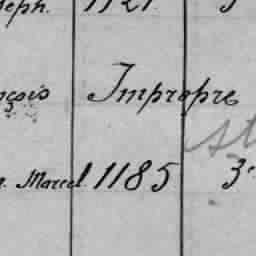 eph. 1121.
nçois Impropre
Marcel 1185 3e